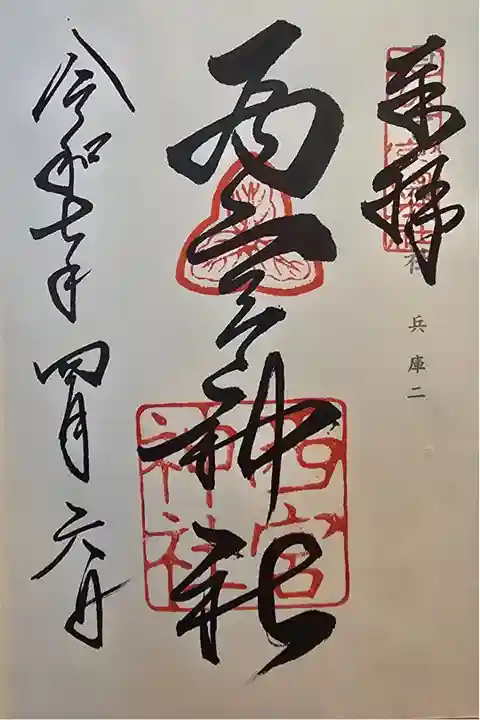 奉拝
兵庫二
西宮神社
西宮
神社
令和七年四月六日